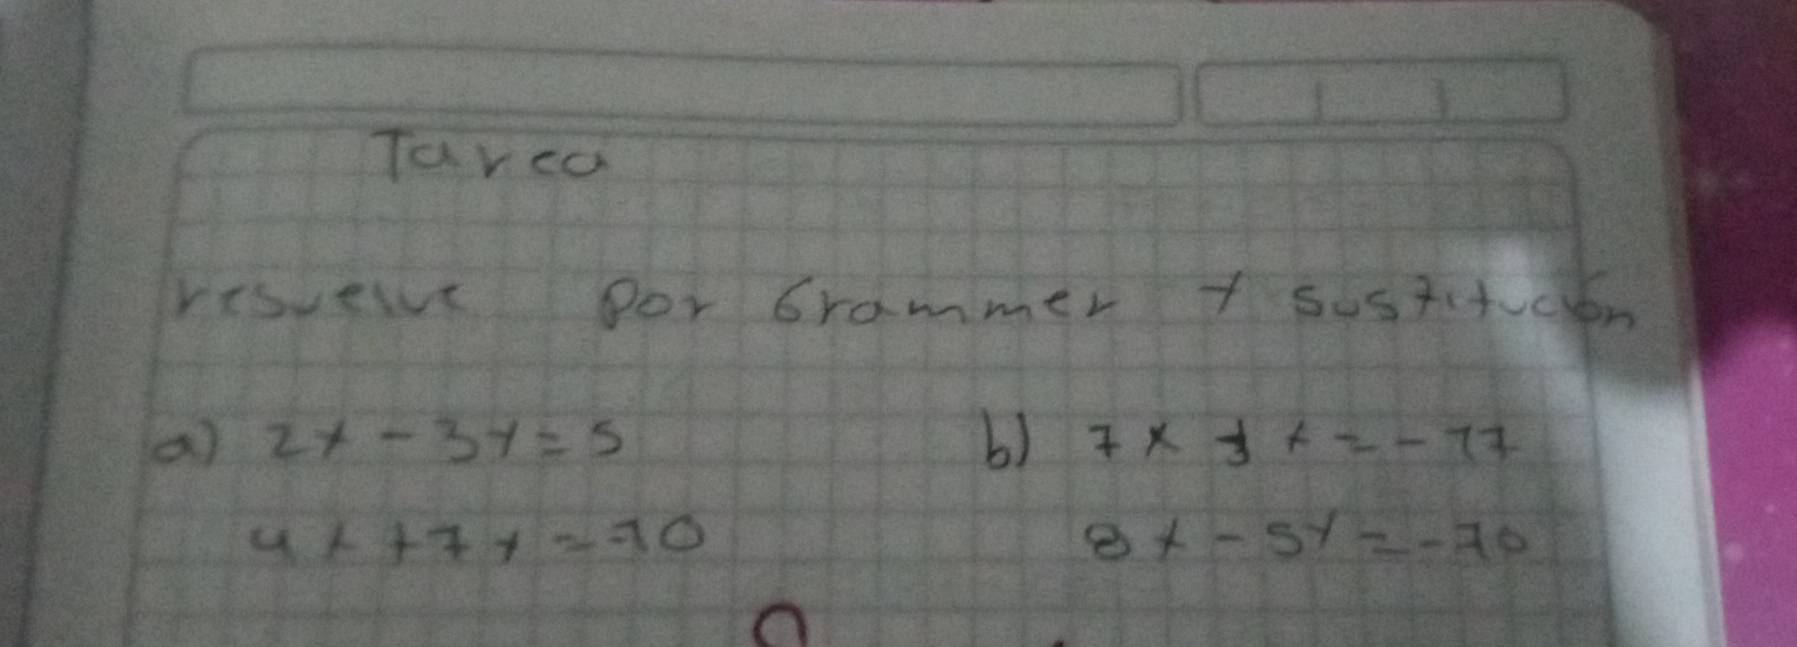 Tarea
resuelve por Grammer y sustitución
a) 2x - 3y = 5 b) 7x
4x + 7y = 10 8x - 5y = -10